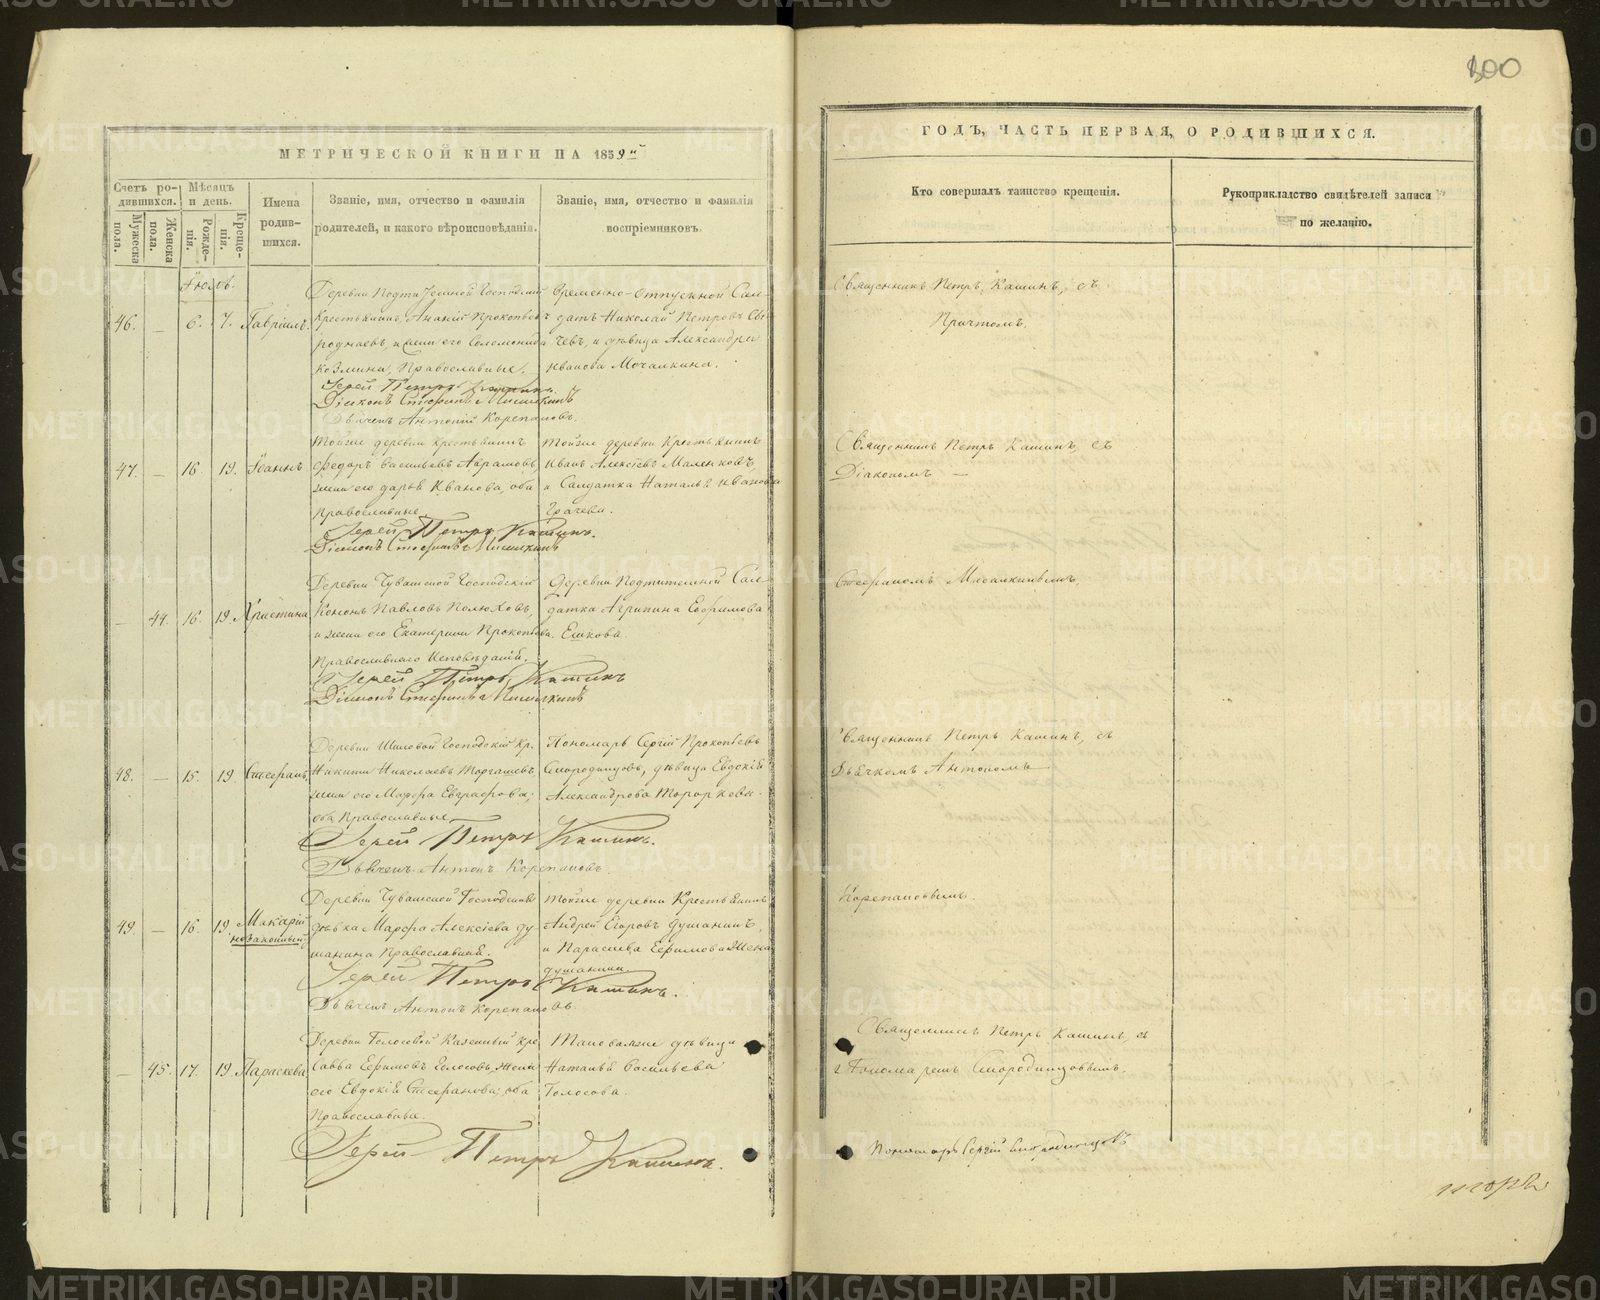 400
МЕТРИЧЕСКОЙ КНИГИ НА 1859й
Счетъ ро-
дившихся.
Мужеска
пола.
Женска
пола.
Мѣсяцъ
и день.
Рожде-
нія.
Креще-
нія.
Имена
родив-
шихся.
Званіе, имя, отчество и фамилія
родителей, и какого вѣроисповѣданія.
Званіе, имя, отчество и фамилія
воспріемниковъ.
Іюль.
46. — 6. 7. Гавріилъ.
Деревни Господскій
Крестьянинъ Ананій Прокопьевъ
и жена его Соломонида
Козмина, Православные.
Временно-отпускной Сал-
датъ Николай Петровъ
и дѣвица Александра
Иванова Мочалкина.
Іерей Петръ Кашинъ.
Діаконъ Стефанъ
Дьячекъ Антоній Корепановъ.
47. — 16. 19. Іоаннъ
Тойже деревни крестьянинъ
Федоръ Васильевъ Аврамовъ,
жена его Дарья Иванова, оба
православные
Тойже деревни Крестьянинъ
Иванъ Алексіевъ Маленковъ,
и Салдатка Наталья Иванова
Грачева.
Іерей Петръ Кашинъ.
Діаконъ Стефанъ
— 44. 16. 19. Христина
Деревни Чувашской Господскій
Павловъ Полюховъ,
и жена его Екатерина Прокопьева.
Православнаго Исповѣданія.
Деревни Сал-
датка Агрипина Ефимова
Ешкова.
Іерей Петръ Кашинъ
Діаконъ Стефанъ
48. — 15. 19. Стефанъ
Деревни Шиловой Господскій Кр.
Никита Николаевъ Торгашевъ
жена его Марфа Евграфова;
оба Православные
Пономарь Сергій Прокопьевъ
Смородинцовъ, дѣвица Евдокія
Александрова
Іерей Петръ Кашинъ.
Дьячекъ Антонъ Корепановъ.
49. — 16. 19 Макарій
незаконный
Деревни Чувашской Господская
дѣвка Марфа Алексіева Ду-
шанина Православная.
Тойже деревни Крестьянинъ
Андрей Егоровъ Душанинъ,
и Парасива Ефимова жена
Душанина
Іерей Петръ Кашинъ.
Дьячекъ Антонъ Корепановъ.
— 45. 17. 19 Параскева
Деревни Голосовой Казенный кре.
Савва Ефимовъ Голосовъ, жена
его Евдокія Стефанова; оба
Православные.
Таковаяже дѣвица
Наталья Васильева
Голосова.
Іерей Петръ Кашинъ.
ГОДЪ, ЧАСТЬ ПЕРВАЯ, О РОДИВШИХСЯ.
Кто совершалъ таинство крещенія.
Рукоприкладство свидѣтелей записи
по желанію.
Священникъ Петръ Кашинъ, съ
Причтомъ.
Священникъ Петръ Кашинъ, съ
Діакономъ —
Стефаномъ
Священникъ Петръ Кашинъ, съ
Дьячкомъ Антономъ
Корепановымъ.
Священникъ Петръ Кашинъ, съ
Пономаремъ Смородинцовымъ.
Пономарь Сергій Смородинцовъ
METRIKI.GASO-URAL.RU